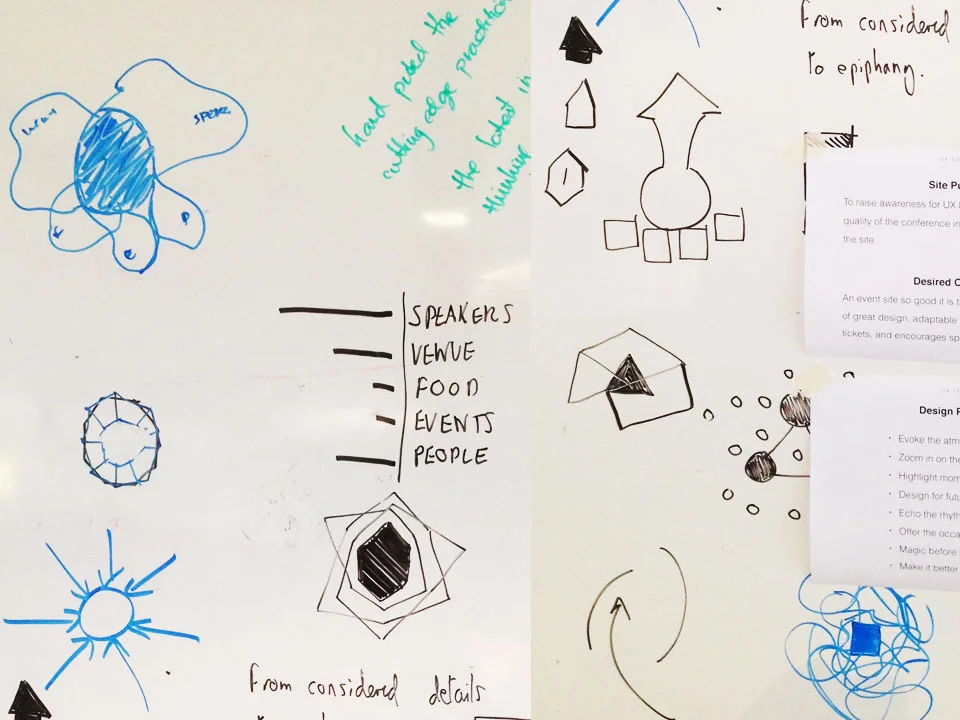 hand picked the
cutting edge practition
the latest in
thinking
SPEAK
F
e
P
SPEAKERS
VENUE
FOOD
EVENTS
PEOPLE
From considered details
From considered
to epiphany.
Site Pu
To raise awareness for UX L
quality of the conference in
the site
Desired O
An event site so good it is t
of great design, adaptable
tickets, and encourages sp
Design P
• Evoke the atm
• Zoom in on the
• Highlight mom
• Design for futu
• Echo the rhyth
• Offer the occa
• Magic before
• Make it better